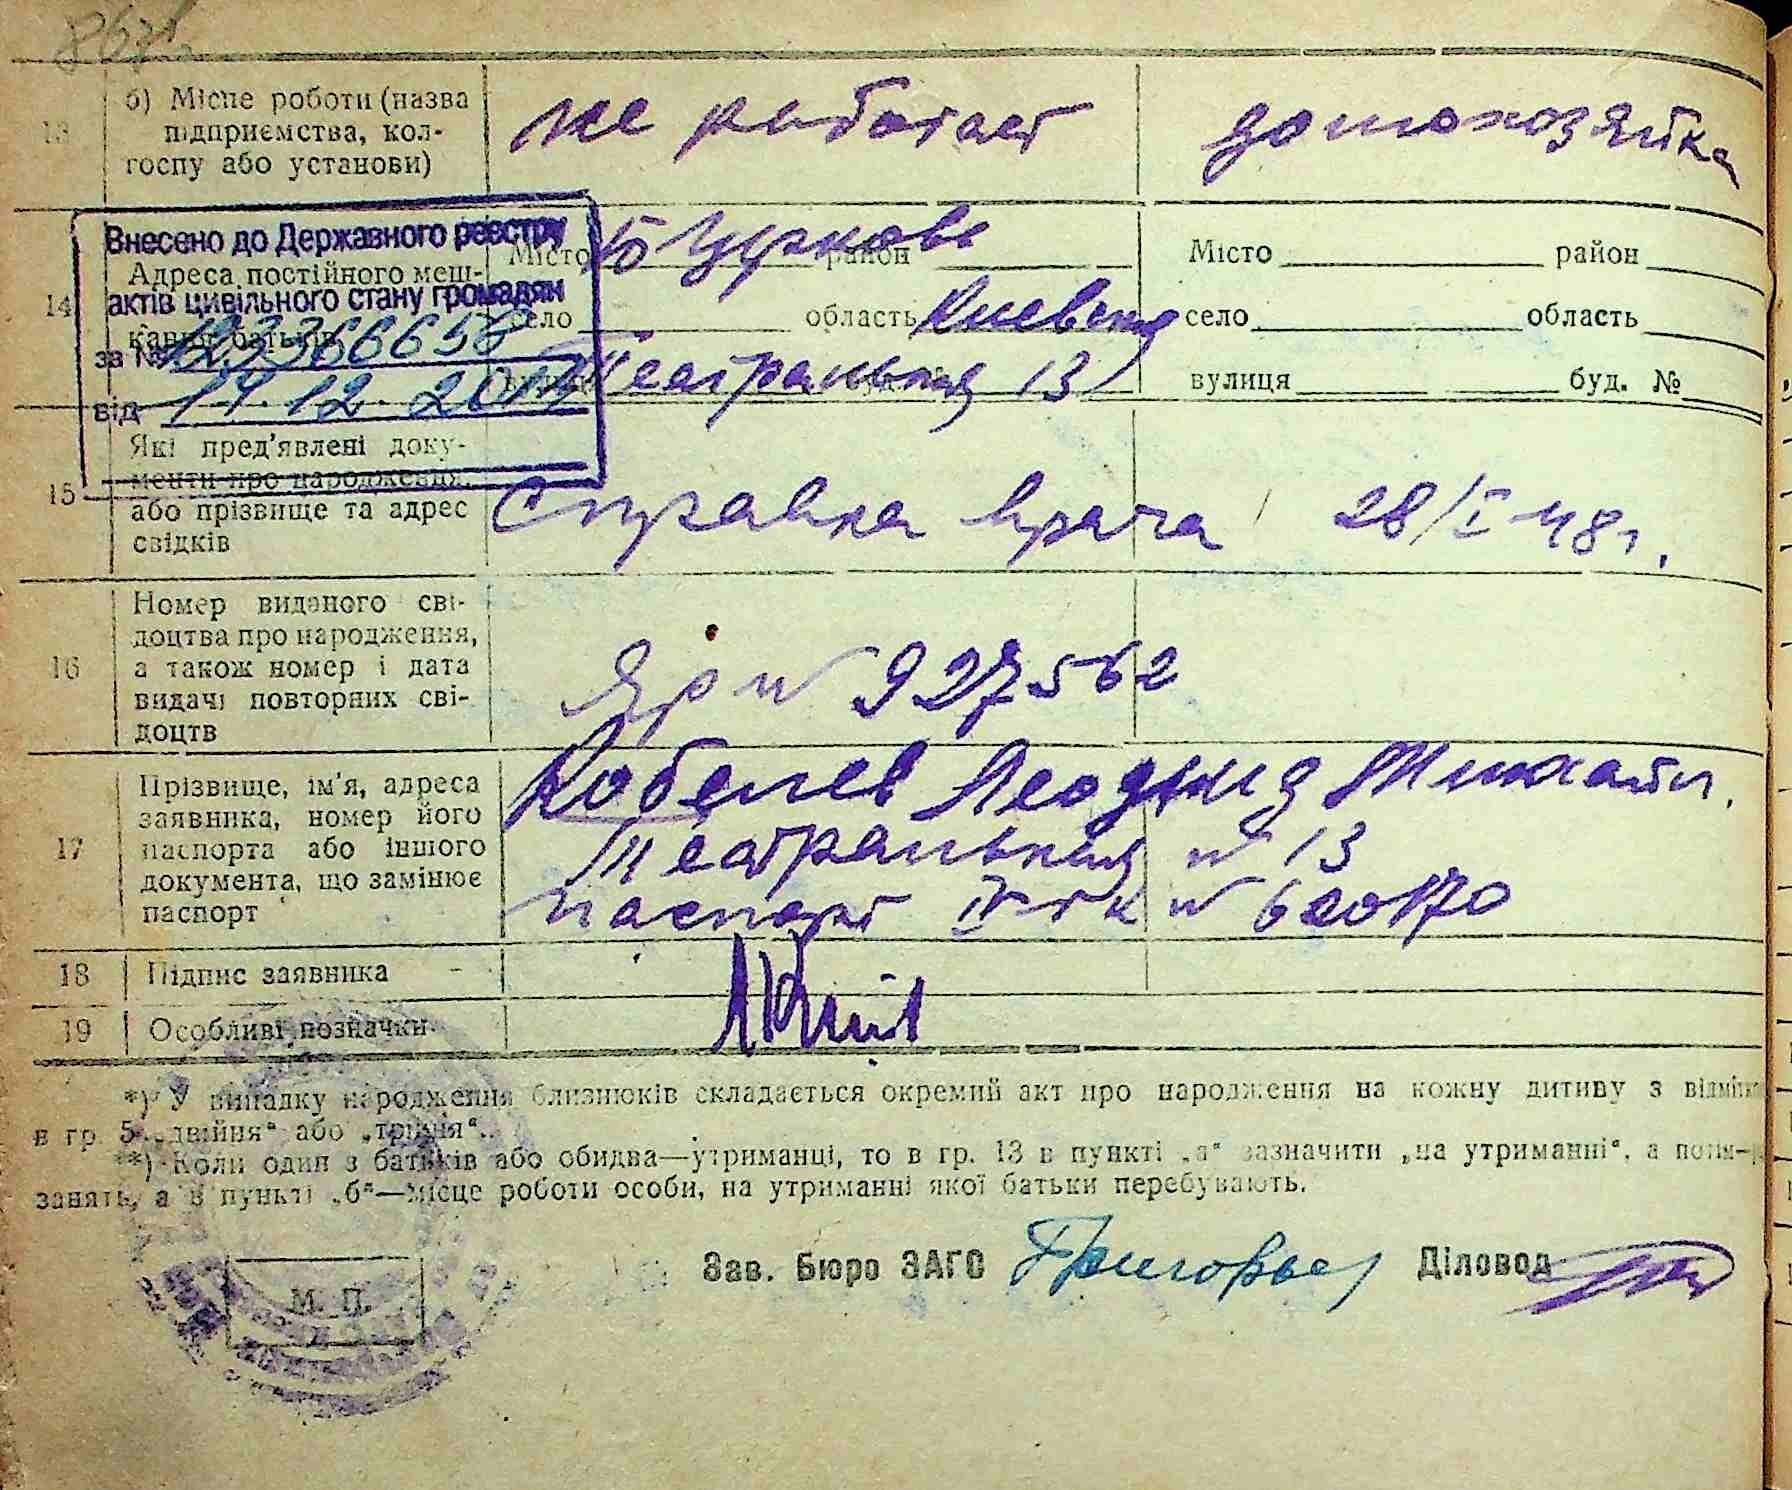 867
13
б) Місце роботи (назва
підприємства, кол-
госпу або установи)
не работает
домохозяйка
Внесено до Державного реєстру
актів цивільного стану громадян
за № 123366656
від 14.12.2014
14
Адреса постійного меш-
кання батьків
Місто Б Церковь район
село область Киевская
Театральная 13
Місто район
село область
вулиця буд. №
15
Які пред'явлені доку-
менти про народження,
або прізвище та адрес
свідків
Справка врача 28/I-48г.
16
Номер виданого сві-
доцтва про народження,
а також номер і дата
видачі повторних сві-
доцтв
ЯР № 927562
17
Прізвище, ім'я, адреса
заявника, номер його
паспорта або іншого
документа, що замінює
паспорт
Кобелев Леодинд Михайл.
Театральная № 13
паспорт № 620170
18
Підпис заявника
19
Особливі позначки
*) У випадку народження близнюків складається окремий акт про народження на кожну дитину з відмітк
в гр. 5 „двійня“ або „трійня“.
**) Коли один з батьків або обидва—утриманці, то в гр. 13 в пункті „а“ зазначити „на утриманні“, а
занять, а в пункті „б“—місце роботи особи, на утриманні якої батьки перебувають.
Зав. Бюро ЗАГС Григорьев Діловод
М. П.